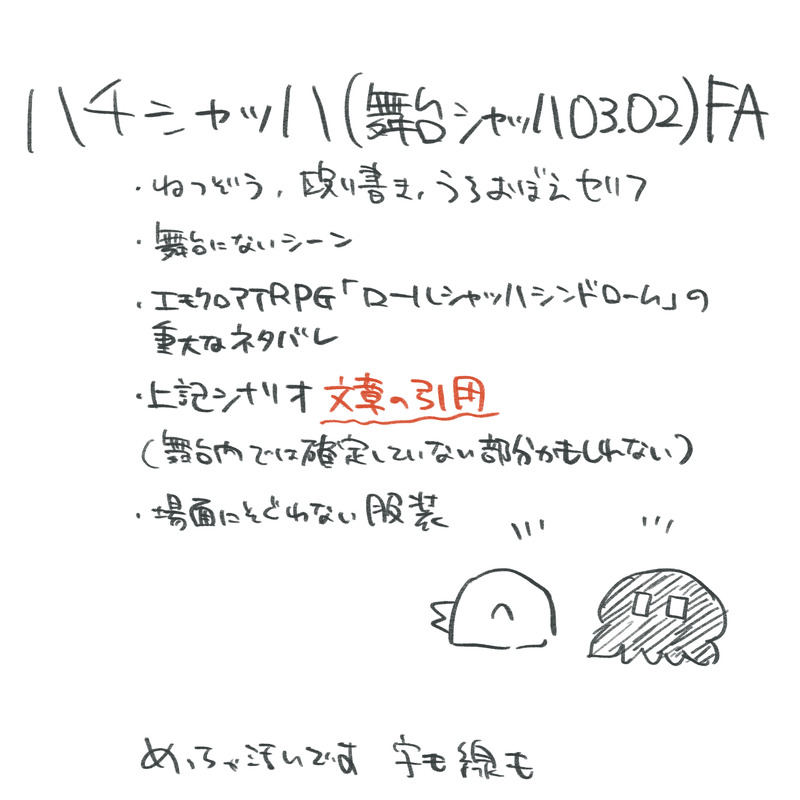 ハチシャッハ(舞台シャッハ03.02)FA
・ねつぞう、殴り書き、うろおぼえセリフ
・舞台にないシーン
・エモクロアTRPG「ロールシャッハシンドローム」の
重大なネタバレ
・上記シナリオ文章の引用
(舞台内では確定していない部分かもしれない)
・場面にそぐわない服装
めっちゃ汚いです 字も線も